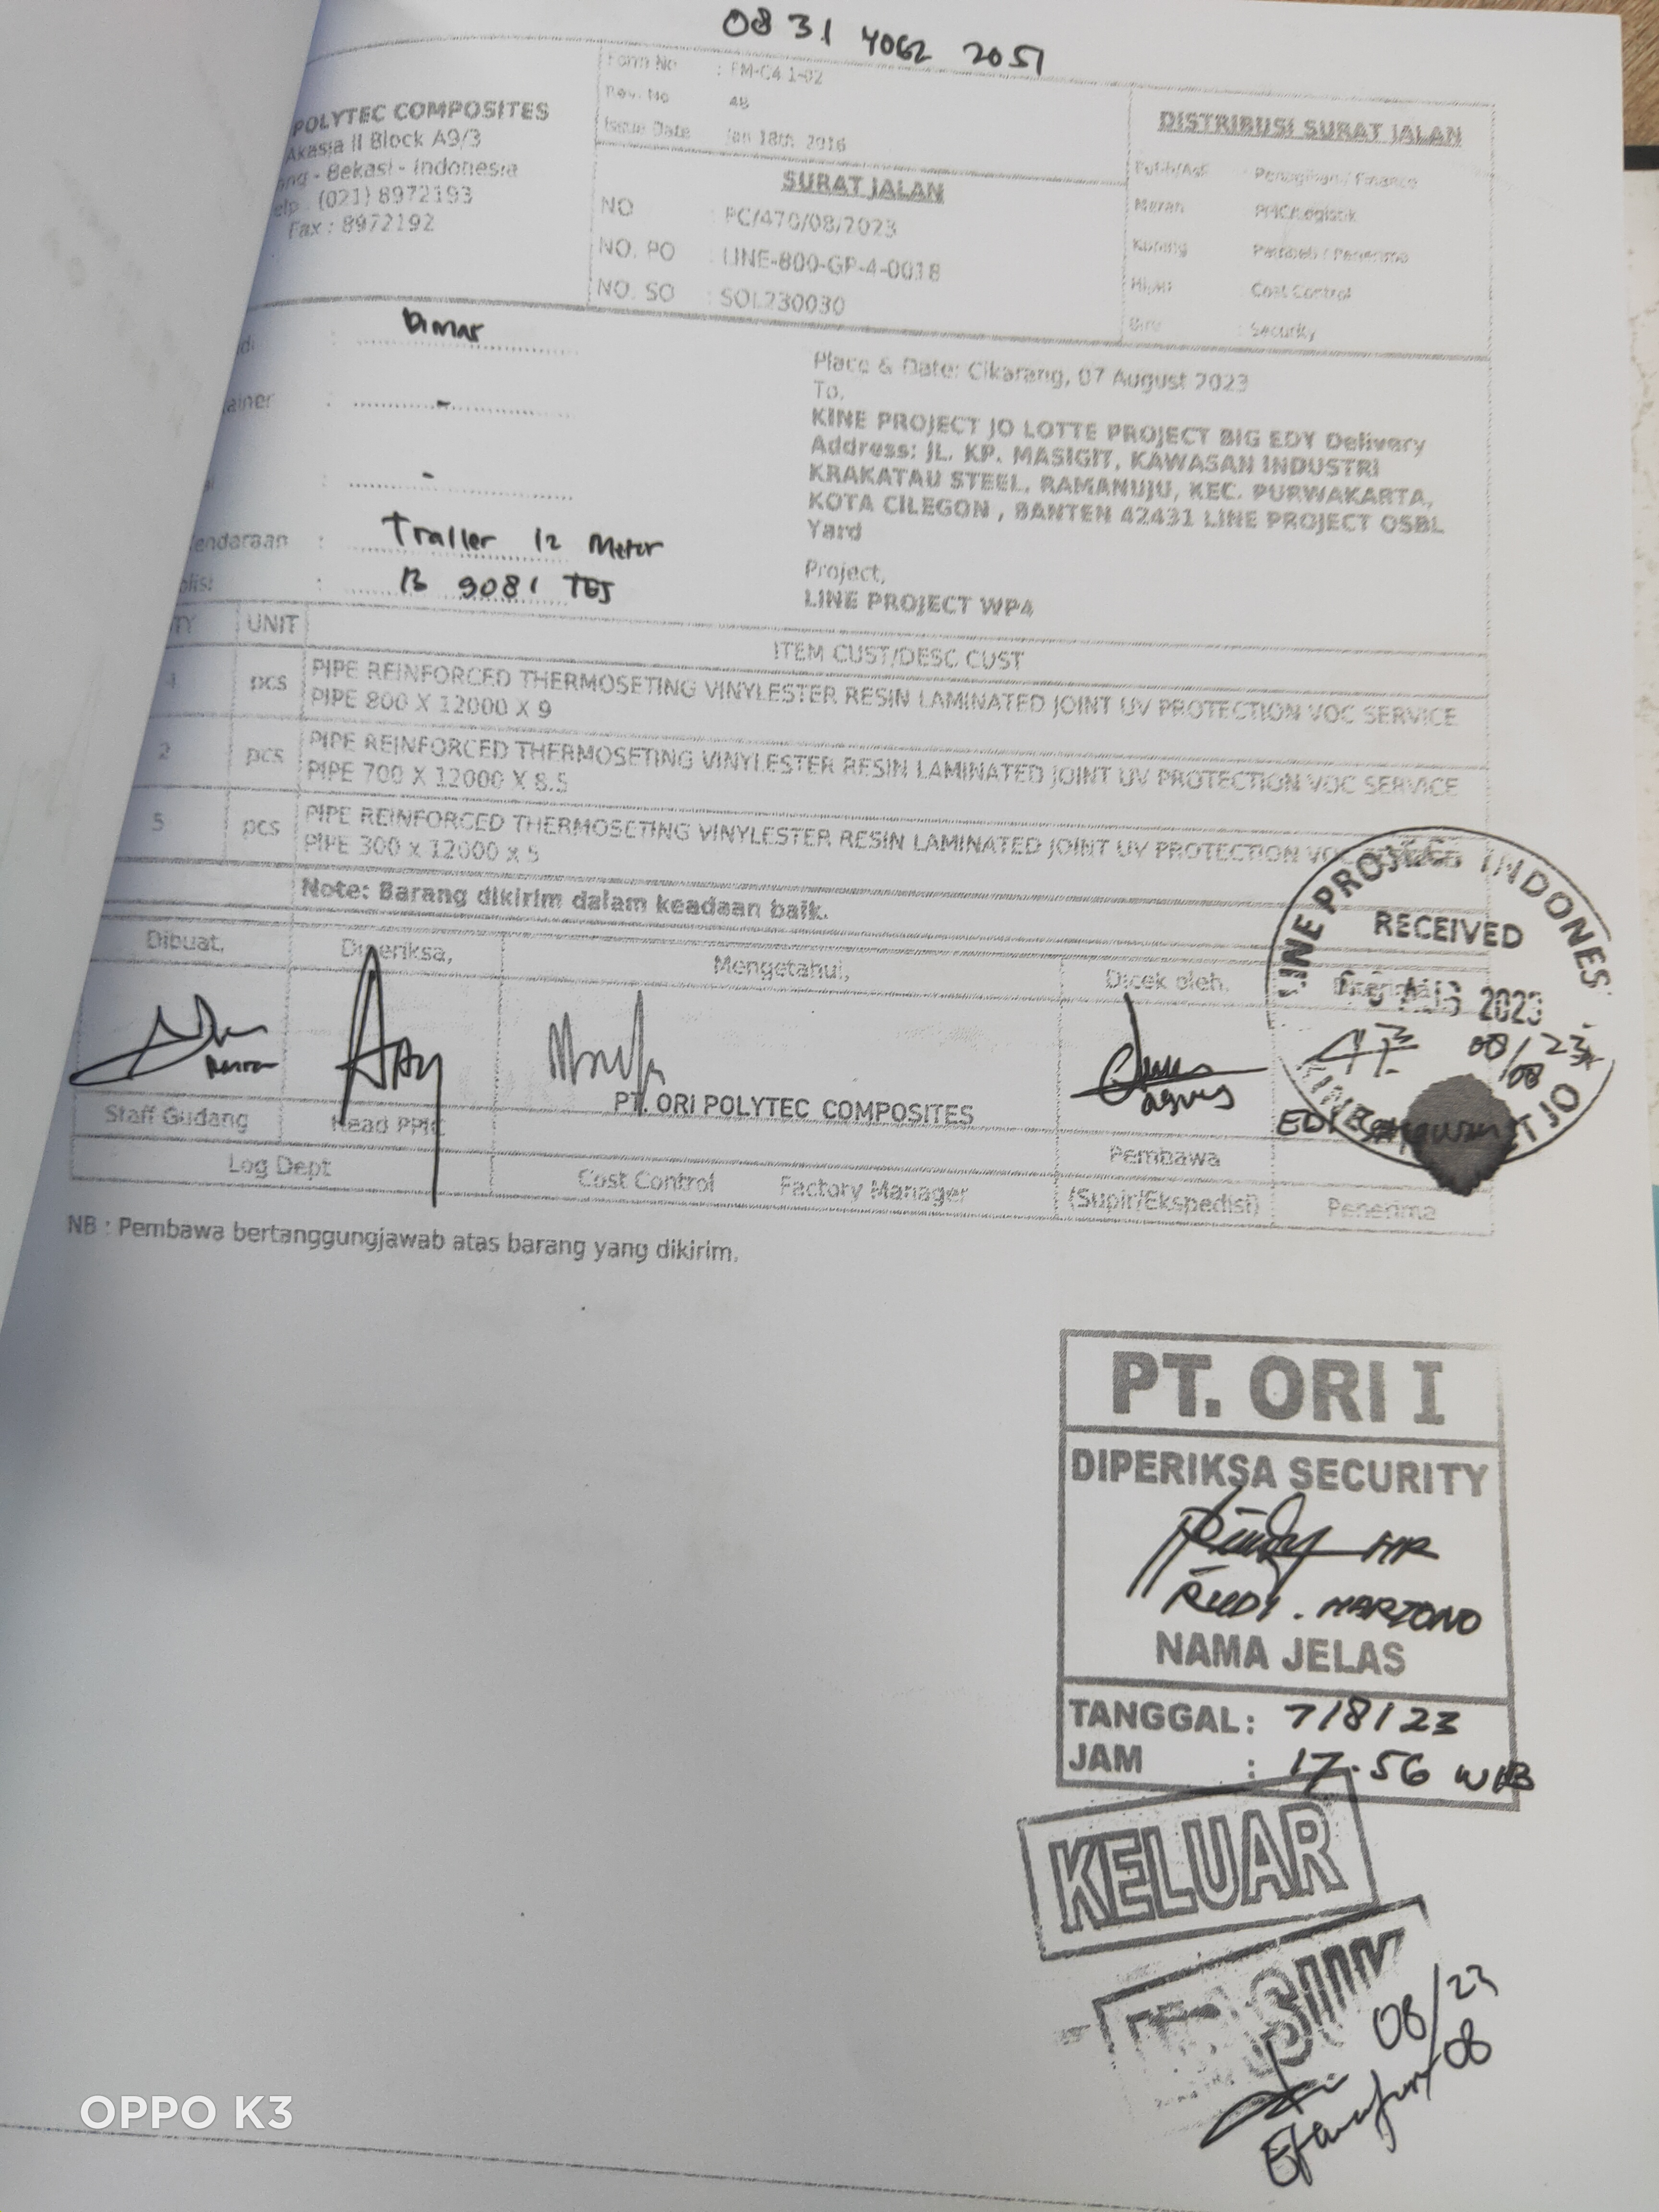 08 31 4062 2051
POLYTEC COMPOSITES
Akasia II Block A9/3
- Bekasi - Indonesia
elp : (021) 8972193
Fax : 8972192
Form No : FM-C4.1-02
Rev. No 4B
Issue Date Jan 18th, 2016
SURAT JALAN
NO : PC/470/08/2023
NO. PO : LINE-800-GP-4-0018
NO. SO : SOL230030
DISTRIBUSI SURAT JALAN
Putih/Asli : Penagihan / Finance
Merah PPIC/Logistik
Kuning Pembeli / Penerima
Hijau Cost Control
Biru : Security
: Dimas
ainer : -
: -
endaraan : Traller 12 Meter
olisi : B 9081 TEJ
Place & Date: Cikarang, 07 August 2023
To,
KINE PROJECT JO LOTTE PROJECT BIG EDY Delivery
Address: JL. KP. MASIGIT, KAWASAN INDUSTRI
KRAKATAU STEEL, RAMANUJU, KEC. PURWAKARTA,
KOTA CILEGON , BANTEN 42431 LINE PROJECT OSBL
Yard
Project,
LINE PROJECT WP4
TY UNIT ITEM CUST/DESC CUST
4 pcs PIPE REINFORCED THERMOSETING VINYLESTER RESIN LAMINATED JOINT UV PROTECTION VOC SERVICE
PIPE 800 X 12000 X 9
2 pcs PIPE REINFORCED THERMOSETING VINYLESTER RESIN LAMINATED JOINT UV PROTECTION VOC SERVICE
PIPE 700 X 12000 X 8.5
5 pcs PIPE REINFORCED THERMOSETING VINYLESTER RESIN LAMINATED JOINT UV PROTECTION VOC
PIPE 300 x 12000 x 5
Note: Barang dikirim dalam keadaan baik.
Dibuat, Diperiksa, Mengetahui, Dicek oleh,
LINE PROJECT INDONES
RECEIVED
AUG 2023
08/23
08
agus
PT. ORI POLYTEC COMPOSITES
Staff Gudang Head PPIC Pembawa
Log Dept Cost Control Factory Manager (Supir/Ekspedisi) Penerima
NB : Pembawa bertanggungjawab atas barang yang dikirim.
PT. ORI I
DIPERIKSA SECURITY
RUDI . HARTONO
NAMA JELAS
TANGGAL : 7/8/23
JAM : 17.56 WIB
KELUAR
08/23
08
OPPO K3